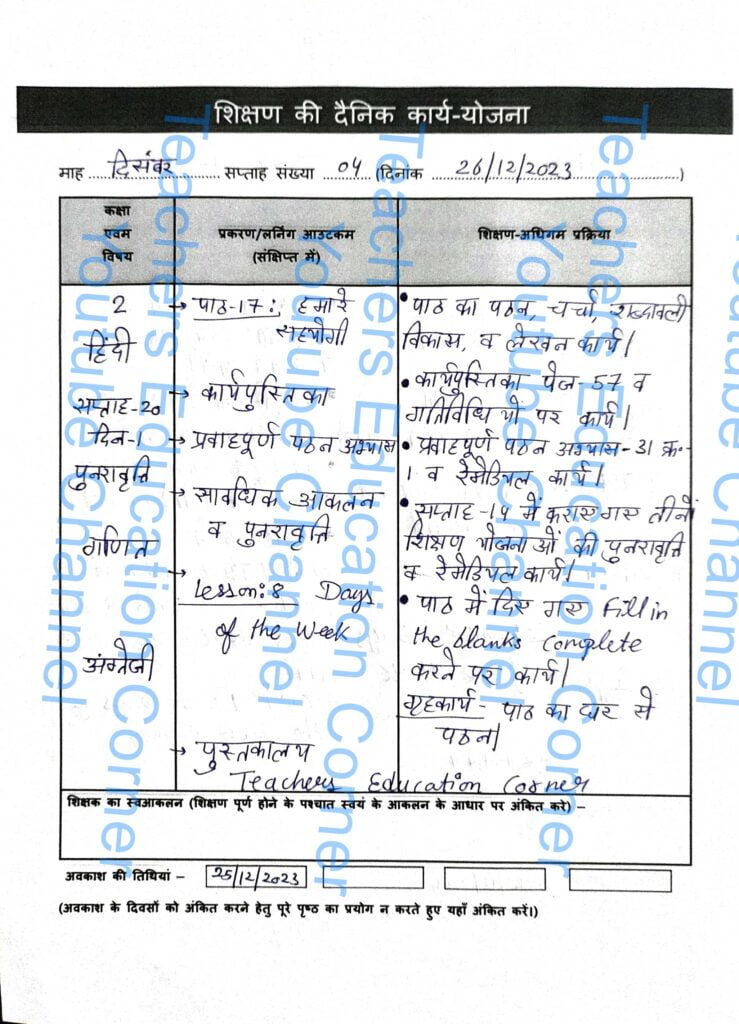 शिक्षण की दैनिक कार्य-योजना
माह दिसंबर सप्ताह संख्या 04 (दिनांक 26/12/2023)
कक्षा
एवम
विषय
प्रकरण/लर्निंग आउटकम
(संक्षिप्त में)
शिक्षण-अधिगम प्रक्रिया
2
हिंदी
सप्ताह-20
दिन-1
पुनरावृत्ति
गणित
अंग्रेजी
→ पाठ-17: हमारे
सहयोगी
→ कार्यपुस्तिका
→ प्रवाहपूर्ण पठन अभ्यास
→ सावधिक आकलन
व पुनरावृत्ति
→
Lesson:8 Days
of the Week
→ पुस्तकालय
• पाठ का पठन, चर्चा, शब्दावली
विकास, व लेखन कार्य।
• कार्यपुस्तिका पेज-57 व
गतिविधियों पर कार्य।
• प्रवाहपूर्ण पठन अभ्यास-31 क्र.-
1 व रेमेडियल कार्य।
• सप्ताह-14 में कराए गए तीनों
शिक्षण योजनाओं की पुनरावृत्ति
व रेमेडियल कार्य।
• पाठ में दिए गए Fill in
the blanks complete
करने पर कार्य।
गृहकार्य- पाठ का घर से
पठन।
Teachers Education Corner
शिक्षक का स्वआकलन (शिक्षण पूर्ण होने के पश्चात स्वयं के आकलन के आधार पर अंकित करे) –
अवकाश की तिथियां – 25/12/2023
(अवकाश के दिवसों को अंकित करने हेतु पूरे पृष्ठ का प्रयोग न करते हुए यहाँ अंकित करें।)
Teachers Education Corner
Youtube Channel
Teachers Education Corner
Youtube Channel
Teachers Education Corner
Youtube Channel